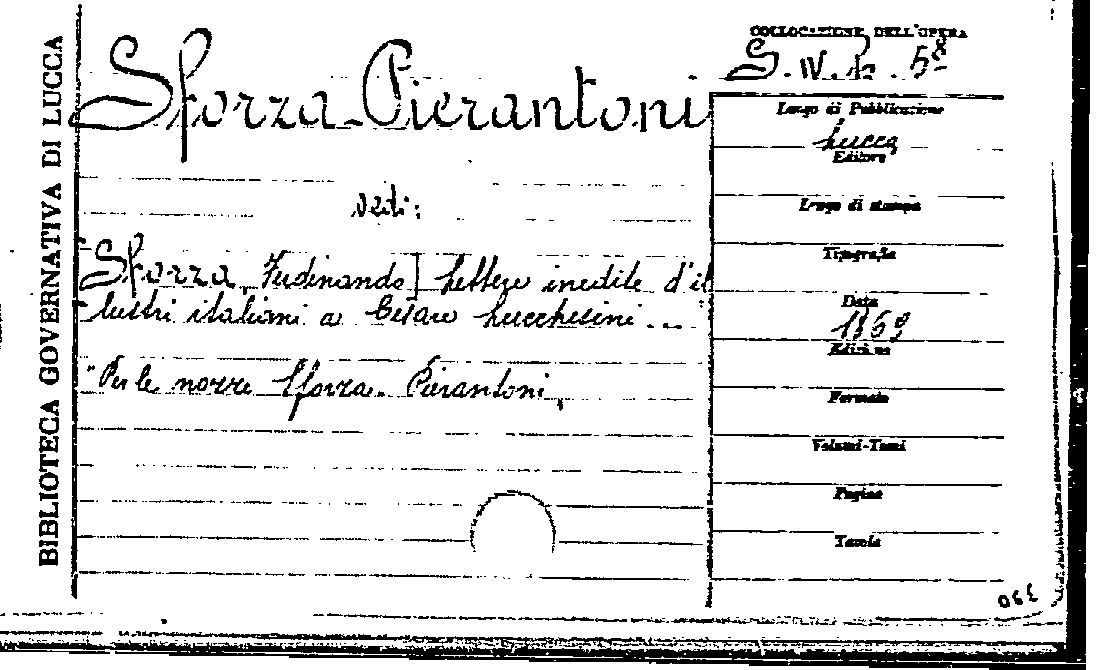 BIBLIOTECA GOVERNATIVA DI LUCCA
Sforza-Pierantoni
vedi:
Sforza, Ferdinando] Lettere inedite d'il
lustri italiani a Cesare Lucchesini ...
"Per le nozze Sforza-Pierantoni,
COLLOCAZIONE DELL'OPERA
Luogo di Pubblicazione
Lucca
Editore
Luogo di stampa
Tipografia
Data
1869
Edizione
Formato
Volumi-Tomi
Pagine
Tavole
390